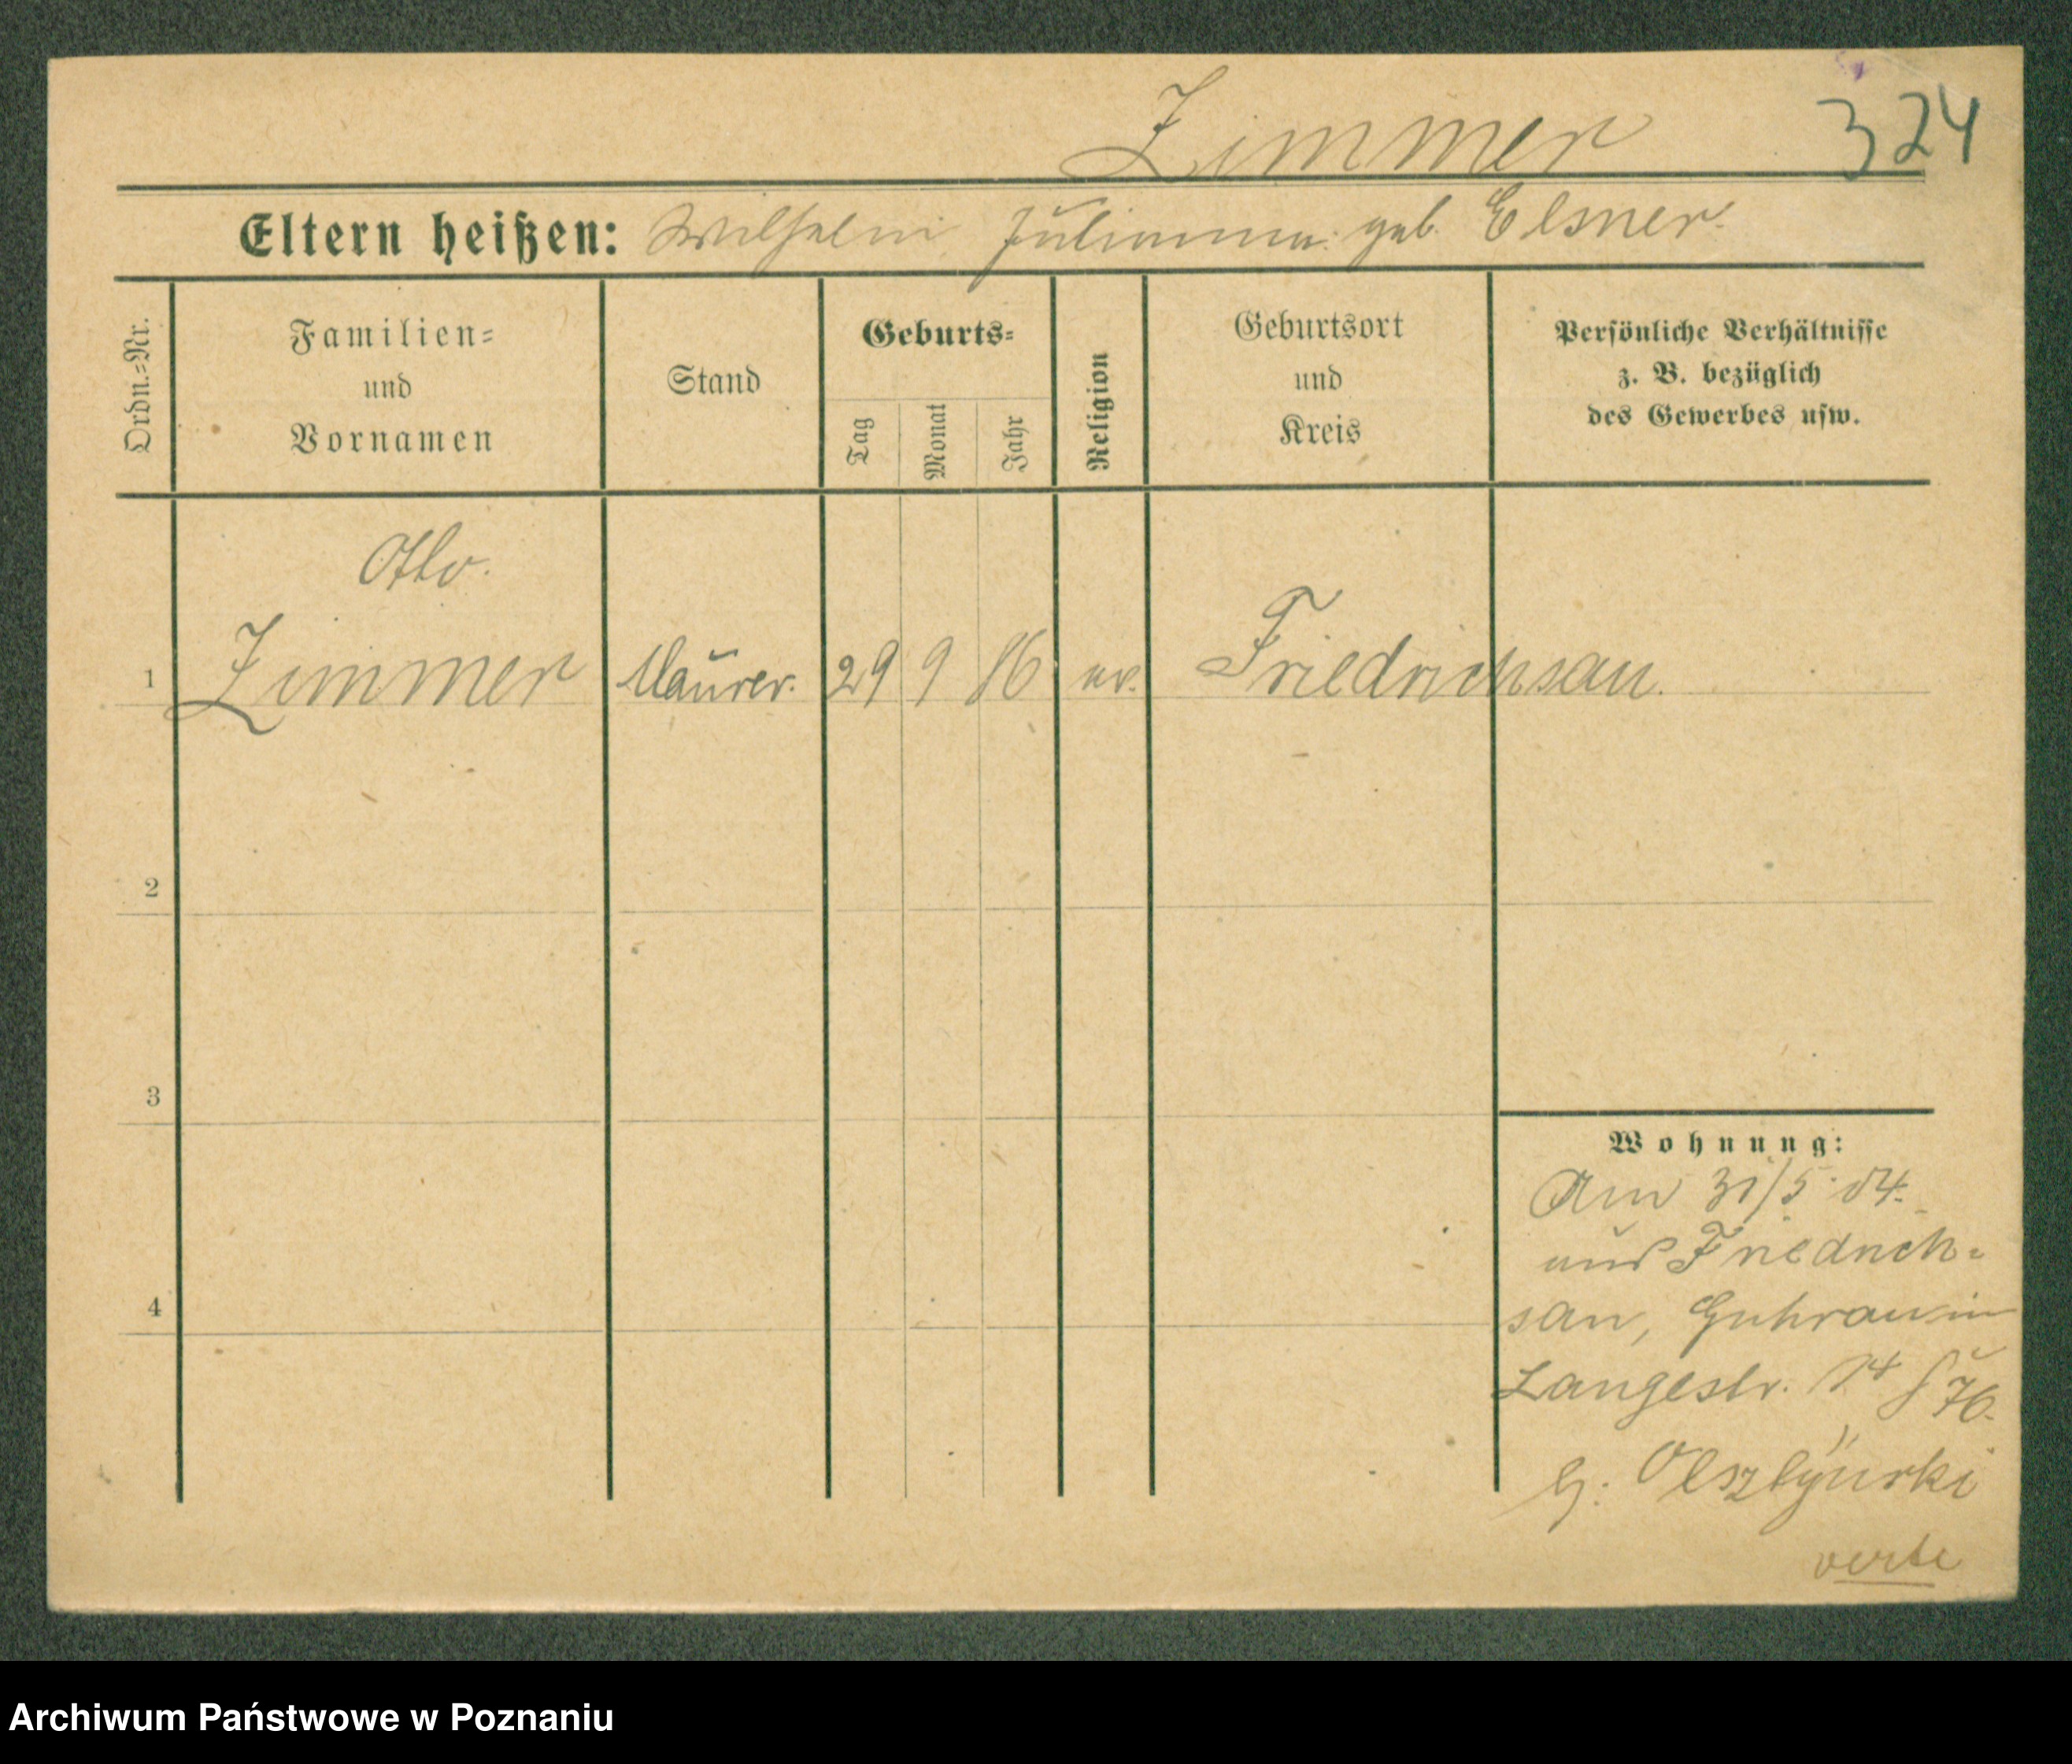 Zimmer 324
Eltern heißen: Wilhelm Julianna geb. Elsner.
Ordn.=Nr.
Familien=
und
Vornamen
Stand
Geburts=
Tag
Monat
Jahr
Religion
Geburtsort
und
Kreis
Persönliche Verhältnisse
z. B. bezüglich
des Gewerbes usw.
Otto.
1 Zimmer Maurer. 29 9 86 ev. Friedrichsau.
2
3
4
Wohnung:
Am 31/5 04.
aus Friedrich=
sau, Guhrau in
Langestr. 14
b. Olszynski
verte
Archiwum Państwowe w Poznaniu